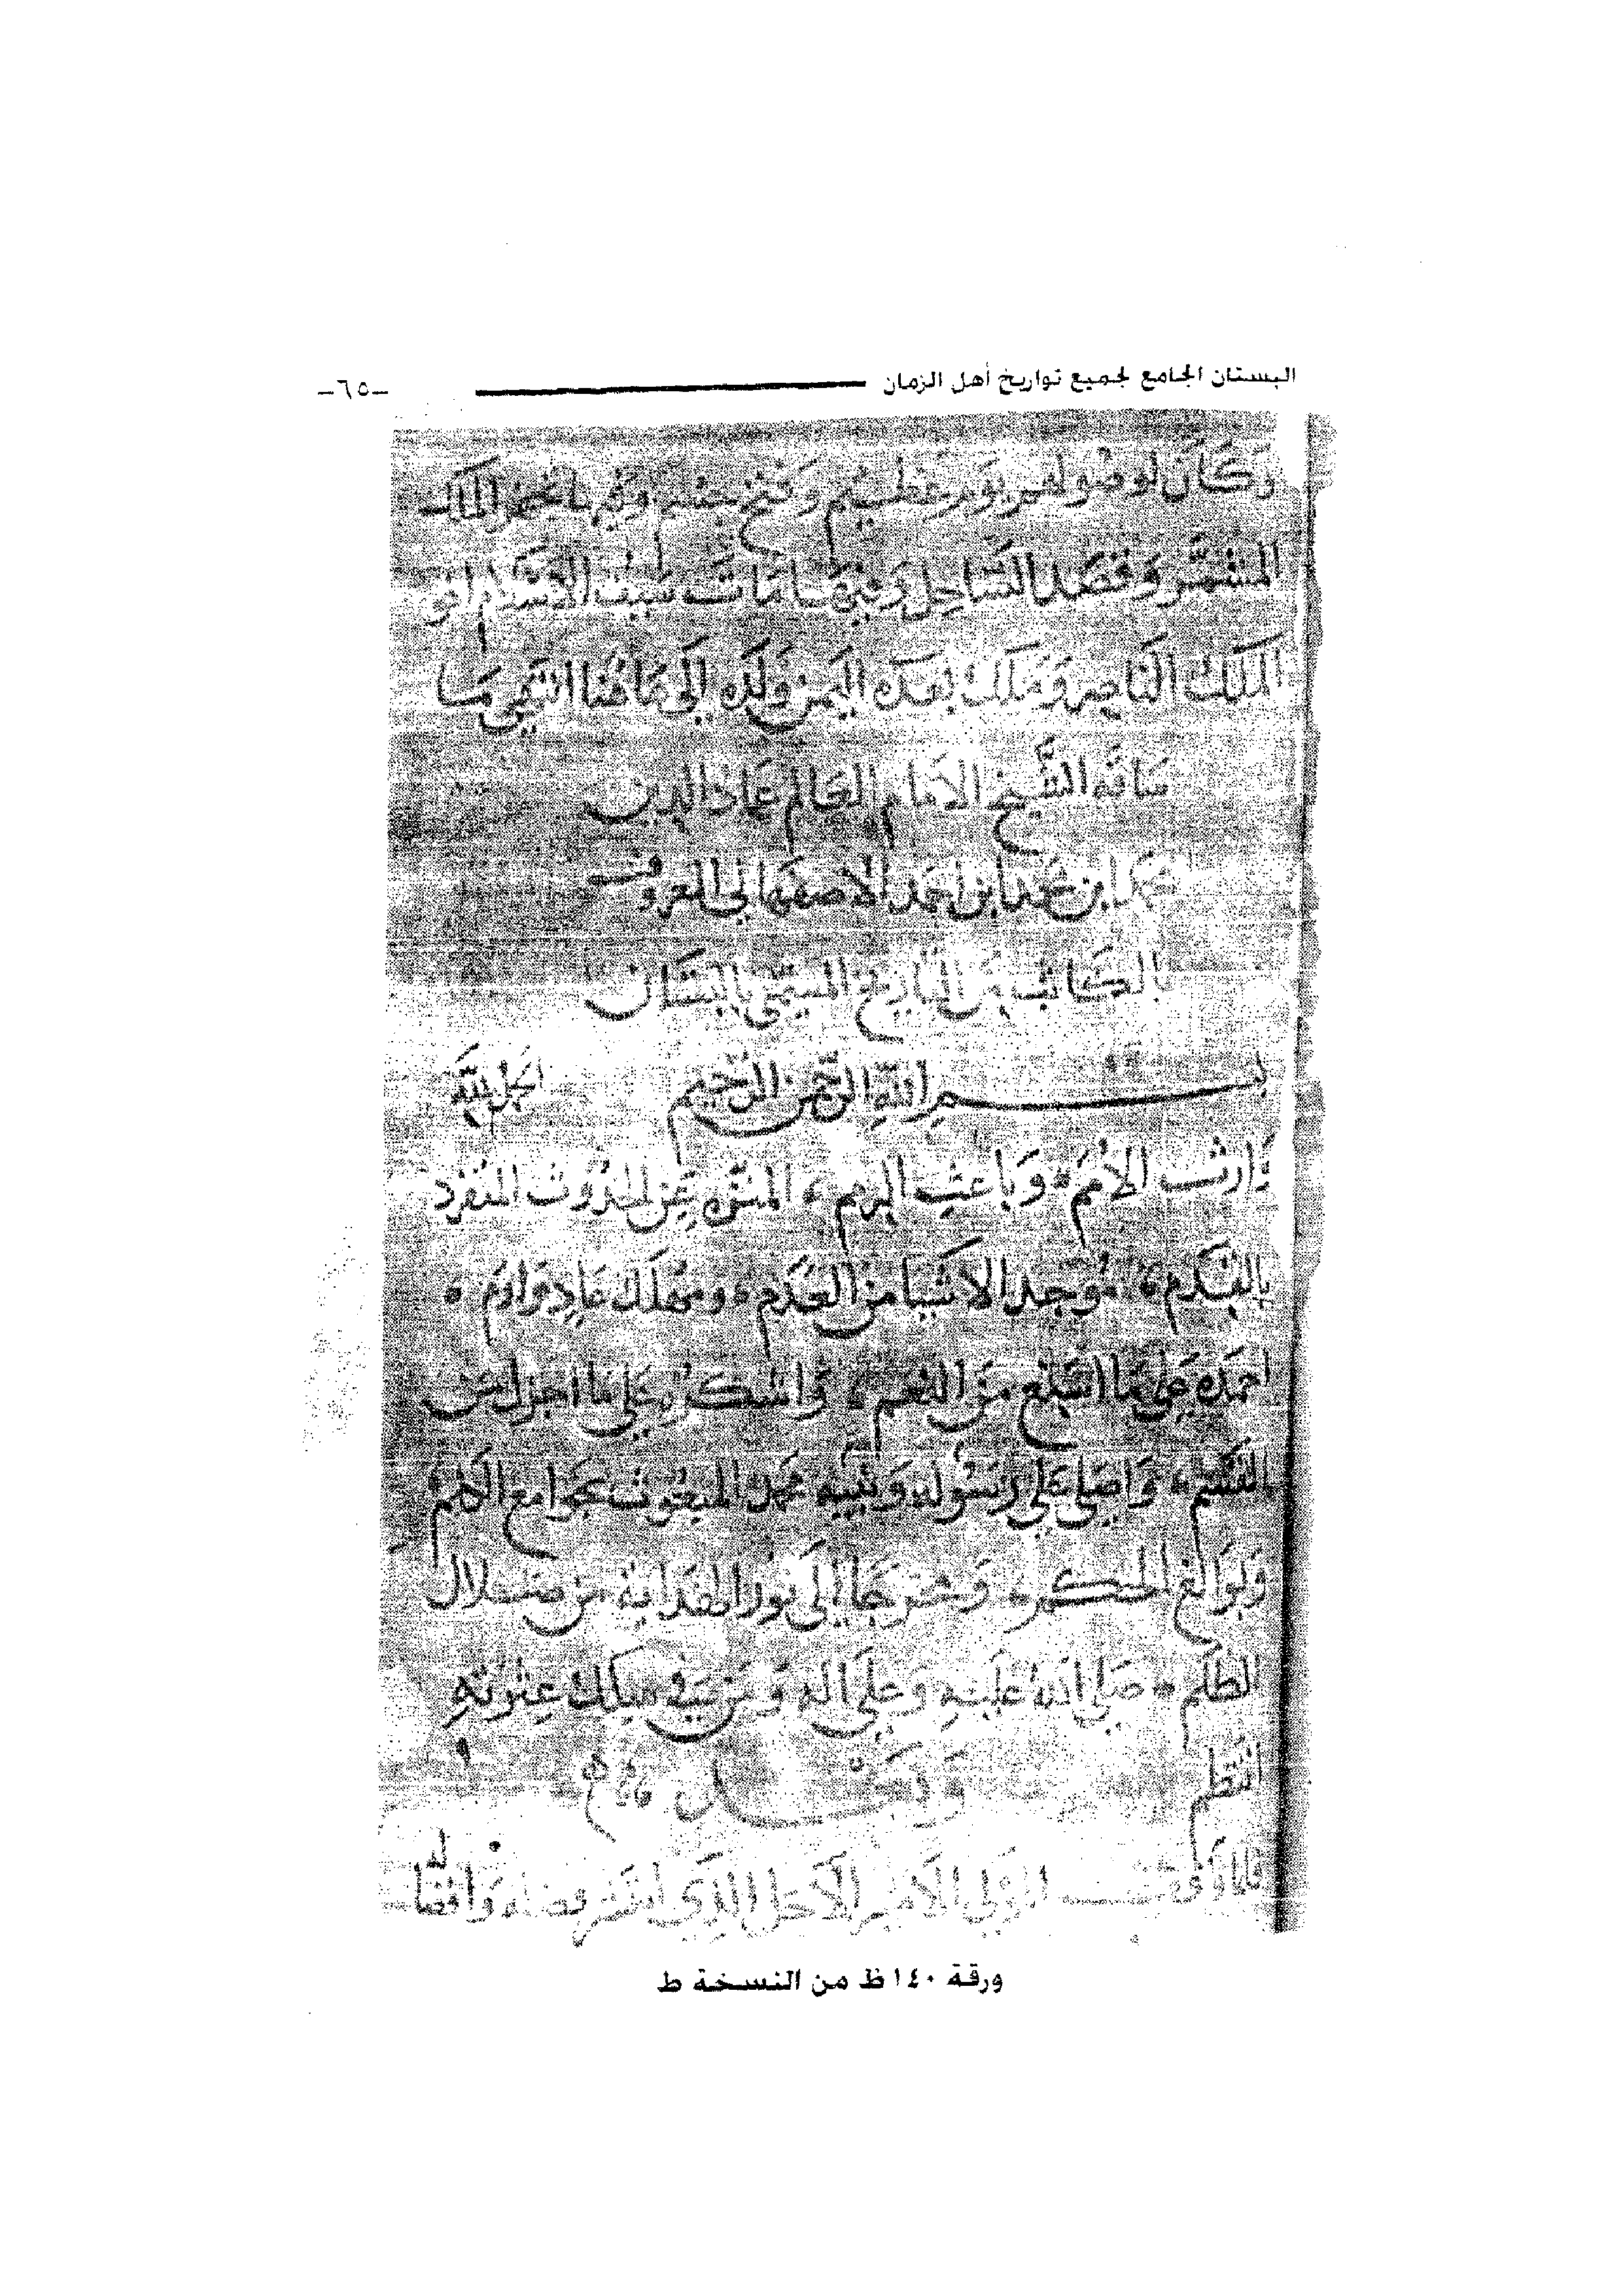 البستان الجامع لجميع تواريخ أهل الزمان
-٦٥-
وَكَانَ لوصُولهم يَوم عَظِيم وَفتح
المشمَّر وَقصَد السَّاحِل وَفيهَا مَاتَ سَيف الاسْلام اخو
المَلك النَاصِر وَمَلك بَعدَه اليَمن وَلَدَه إلَى هَاهُنا انتَهى مَا
سَاقه الشَّيخ الامَام العَالم عمَاد الدين
محمد ابن محمد ابن احمَد الاصفهَاني المعروف
بالكَاتب مِن التاريخ المسَمى بالبستَان
بسم الله الرحمن الرحيم الحمد لله
وَارث الأمَم وَبَاعث الرمم، المنَزه عَن الحدُوث المنفرد
بالقِدَم، مُوجد الاشيَا من العَدَم، ومهلك عَادٍ وَارَم
احمدَه عَلى مَا اسْبَغ مِن النعَم، وَاشكره عَلى مَا اجزل من
القسَم، وَاصَلى عَلى رَسُوله وَنَبيه محمد المبعُوث بجَوَامع الكلم
وَبَوالغ الحكَم، وَمخرجًا إلَى نُور الهدَاية مِن ضَلال
الظلَم، صَلى اللهُ عَلَيهِ وَعَلَى اله وَمَن في سِلك عِترته
انتظم
وَبَعْد
فلما وقفت المولى الأمير الأجل الذي
ورقة ١٤٠ظ من النسخة ط